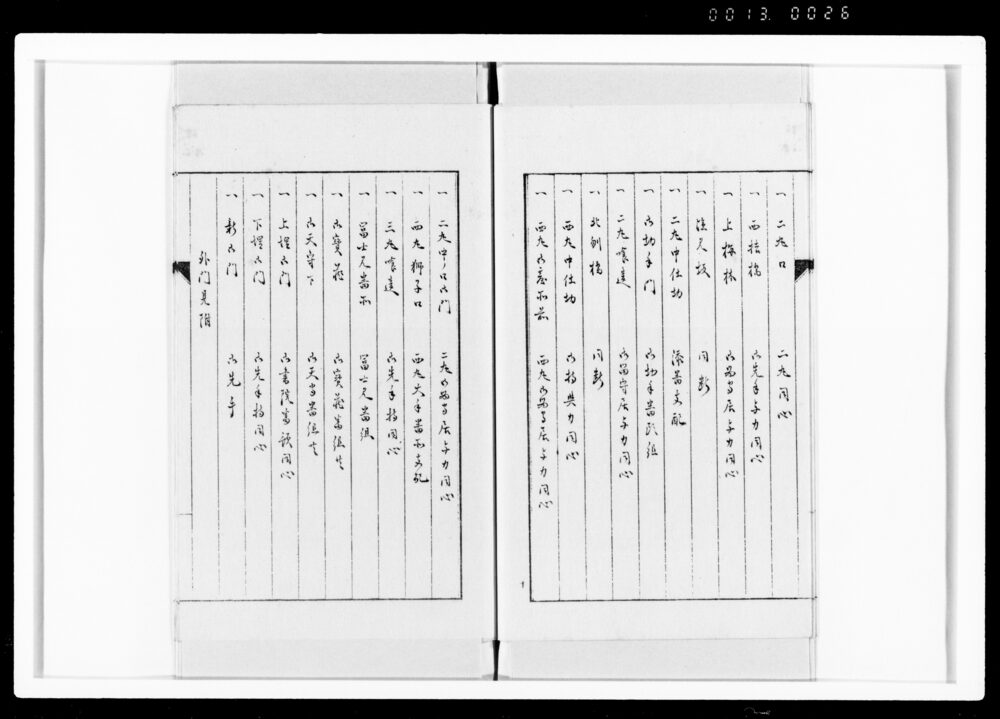 0013. 0026
一 二丸口 二丸同心
一 西桔橋 御先手与力同心
一 上梅林 御留守居与力同心
一 汐見坂 同断
一 二丸中仕切 添番支配
一 御切手門 御切手番頭組
一 二丸喰違 御留守居与力同心
一 北刎橋 同断
一 西丸中仕切 御持与力同心
一 西丸御台所前 西丸御留守居与力同心
一 二丸中ノ口御門 二丸御留守居与力同心
一 西丸獅子口 西丸大手番所支配
一 三丸喰違 御先手持同心
一 富士見番所 富士見番組
一 御宝蔵 御宝蔵番組共
一 御天守下 御天守番組共
一 上埋御門 御書院番頭同心
一 下埋御門 御先手持同心
一 新御門 御先手
外門見附